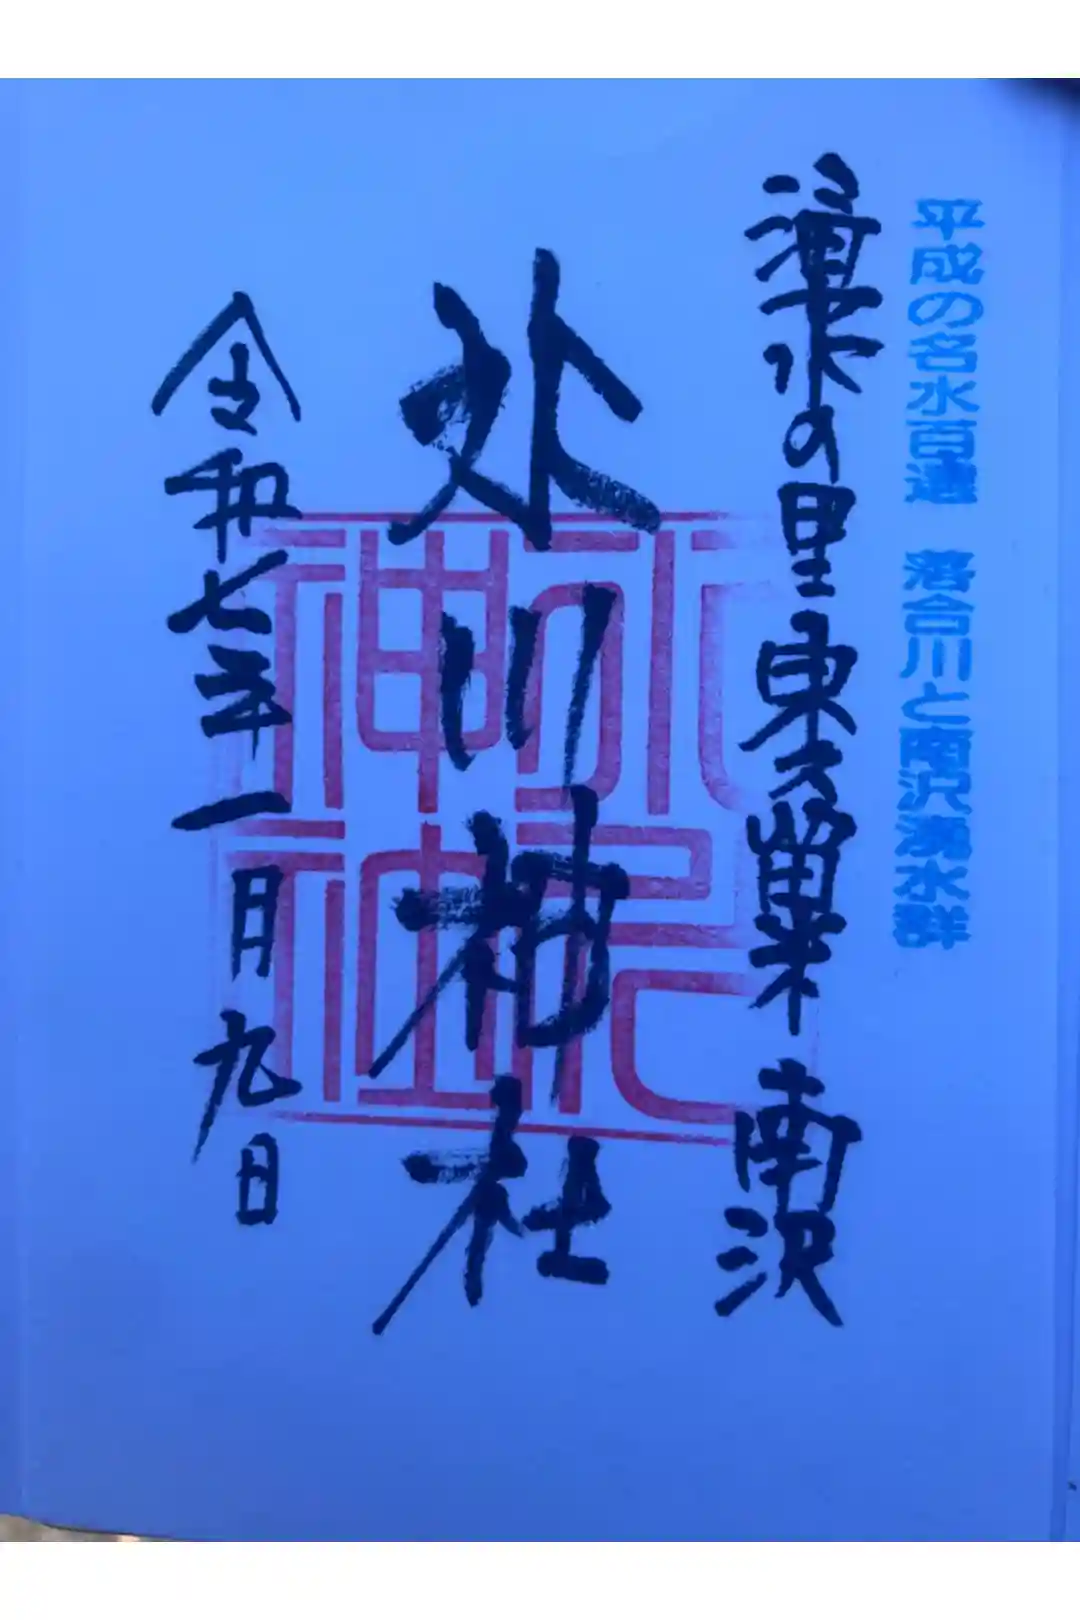 平成の名水百選 落合川と南沢湧水群
湧水の里東久留米 南沢
氷川神社
令和七年一月九日